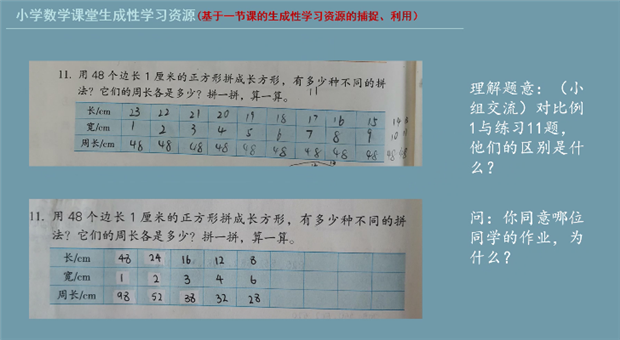 小学数学课堂生成性学习资源(基于一节课的生成性学习资源的捕捉、利用)
11. 用 48 个边长 1 厘米的正方形拼成长方形，有多少种不同的拼
法？它们的周长各是多少？拼一拼，算一算。 11
长/cm 23 22 21 20 19 18 17 16 15 14
宽/cm 1 2 3 4 5 6 7 8 9 10
周长/cm 48 48 48 48 48 48 48 48 48 48 48
理解题意：（小
组交流）对比例
1与练习11题，
他们的区别是什
么？
11. 用 48 个边长 1 厘米的正方形拼成长方形，有多少种不同的拼
法？它们的周长各是多少？拼一拼，算一算。
长/cm 48 24 16 12 8
宽/cm 1 2 3 4 6
周长/cm 98 52 38 32 28
问：你同意哪位
同学的作业，为
什么？